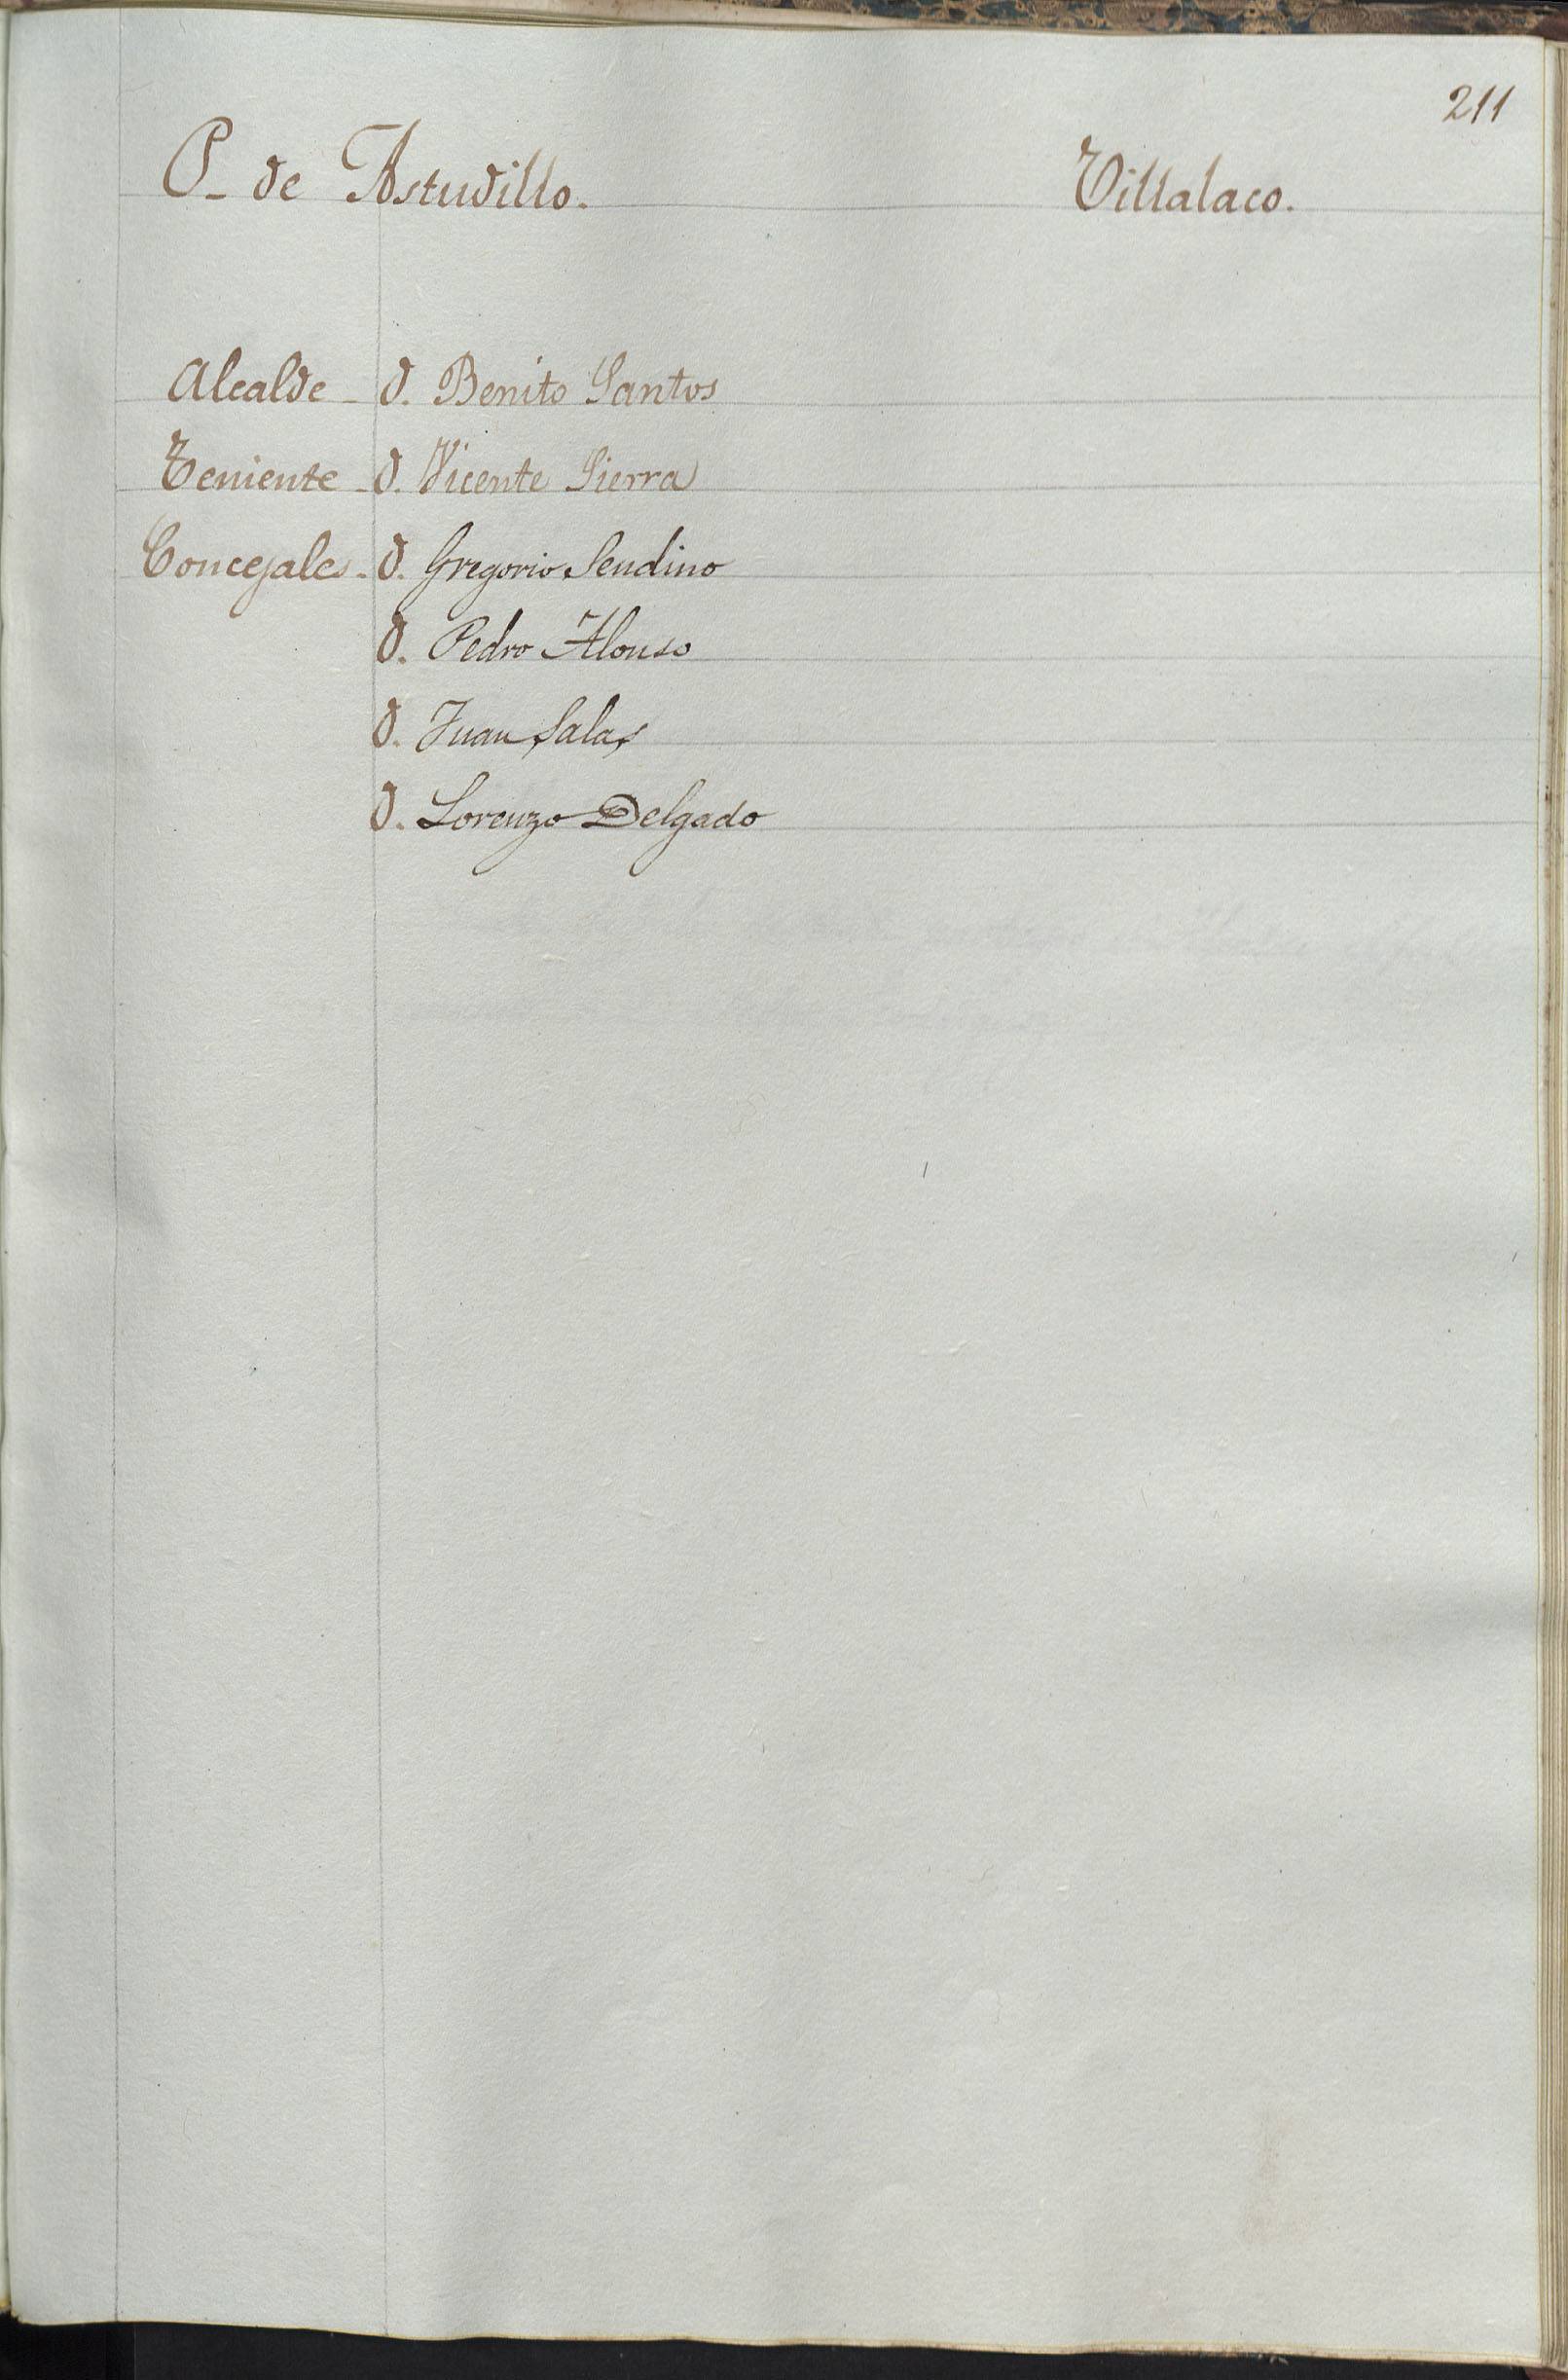 211
P- de Astudillo. Villalaco.
Alcalde - D. Benito Santos
Teniente - D. Vicente Sierra
Concejales - D. Gregorio Sendino
D. Pedro Alonso
D. Juan Salas
D. Lorenzo Delgado